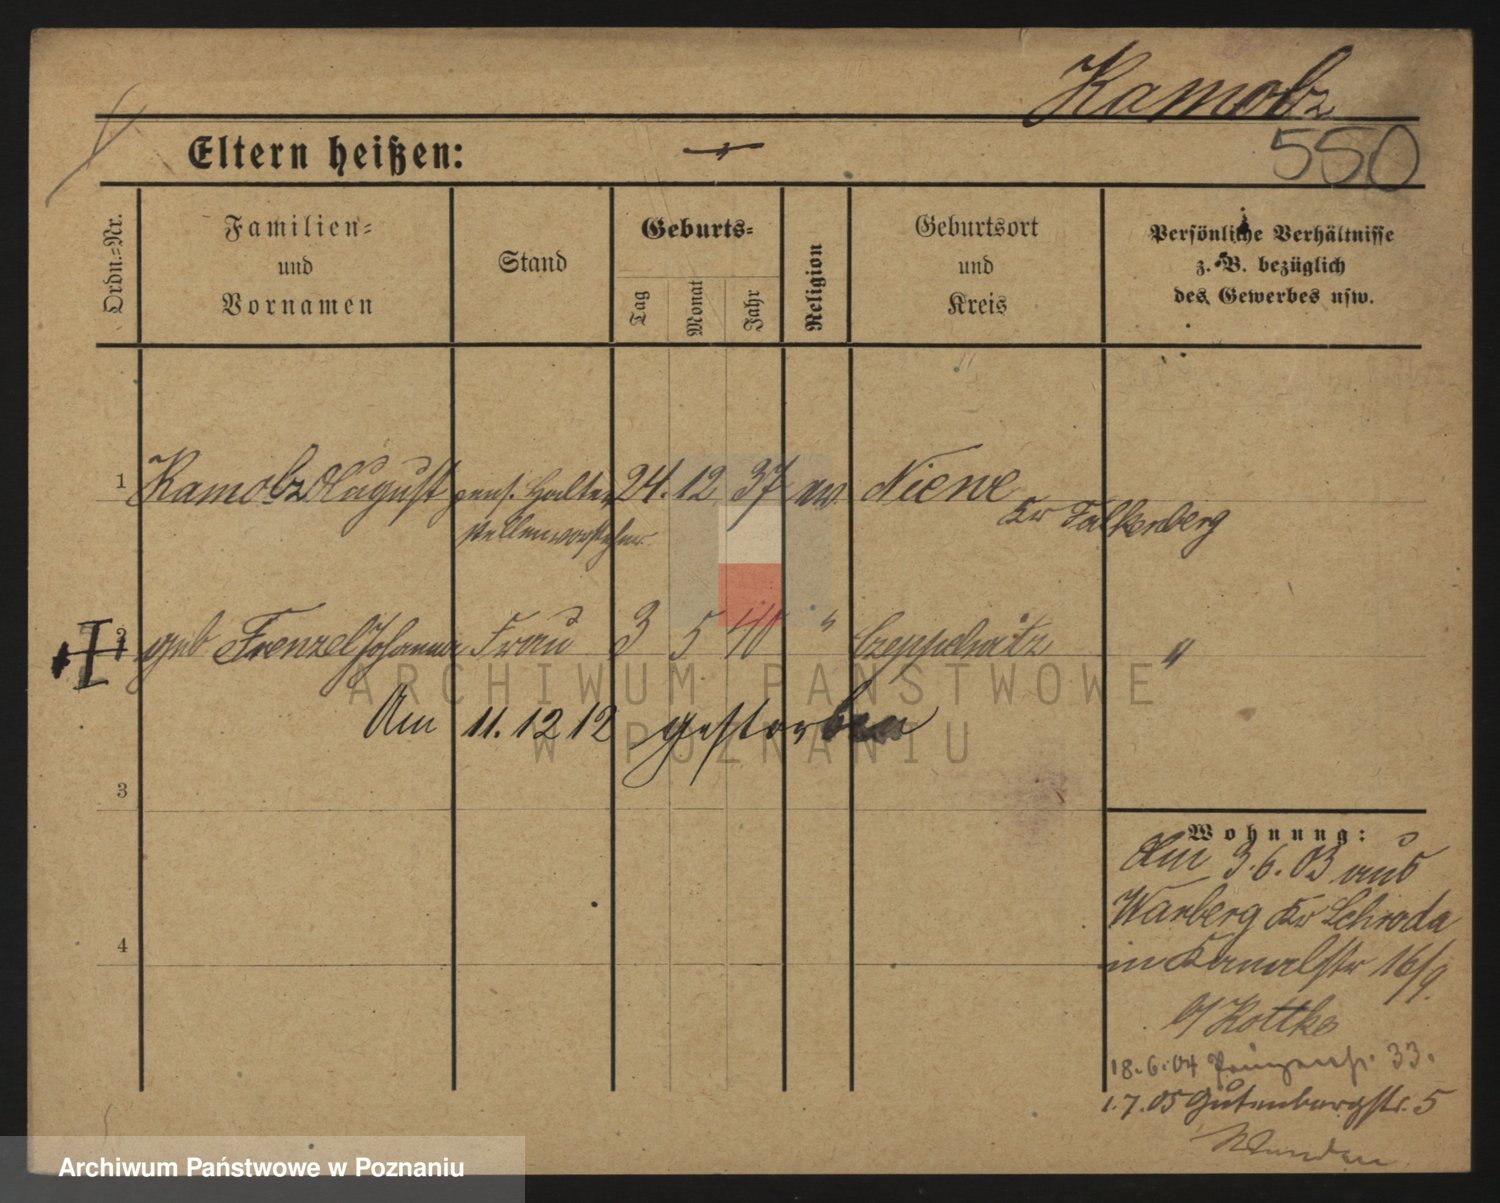 Kamolz
550
Eltern heißen:
Ordn.-Nr.
Familien-
und
Vornamen
Stand
Geburts-
Tag
Monat
Jahr
Religion
Geburtsort
und
Kreis
Persönliche Verhältnisse
z. B. bezüglich
des Gewerbes usw.
1 Kamolz August pens. Halte- 24. 12 37 ev. Niewe
stellenvorsteher Kr Falkenberg
2 geb Frenzel Johanna Frau 3 5 40 " "
Am 11. 12 12 gestorben
3
4
Wohnung:
Am 3.6.03 aus
Warberg Kr Schroda
in Kanalstr 16/9.
b/ Kottke
18.6.04 33.
1.7.05 Gutenbergstr. 5
ARCHIWUM PAŃSTWOWE
W POZNANIU
Archiwum Państwowe w Poznaniu